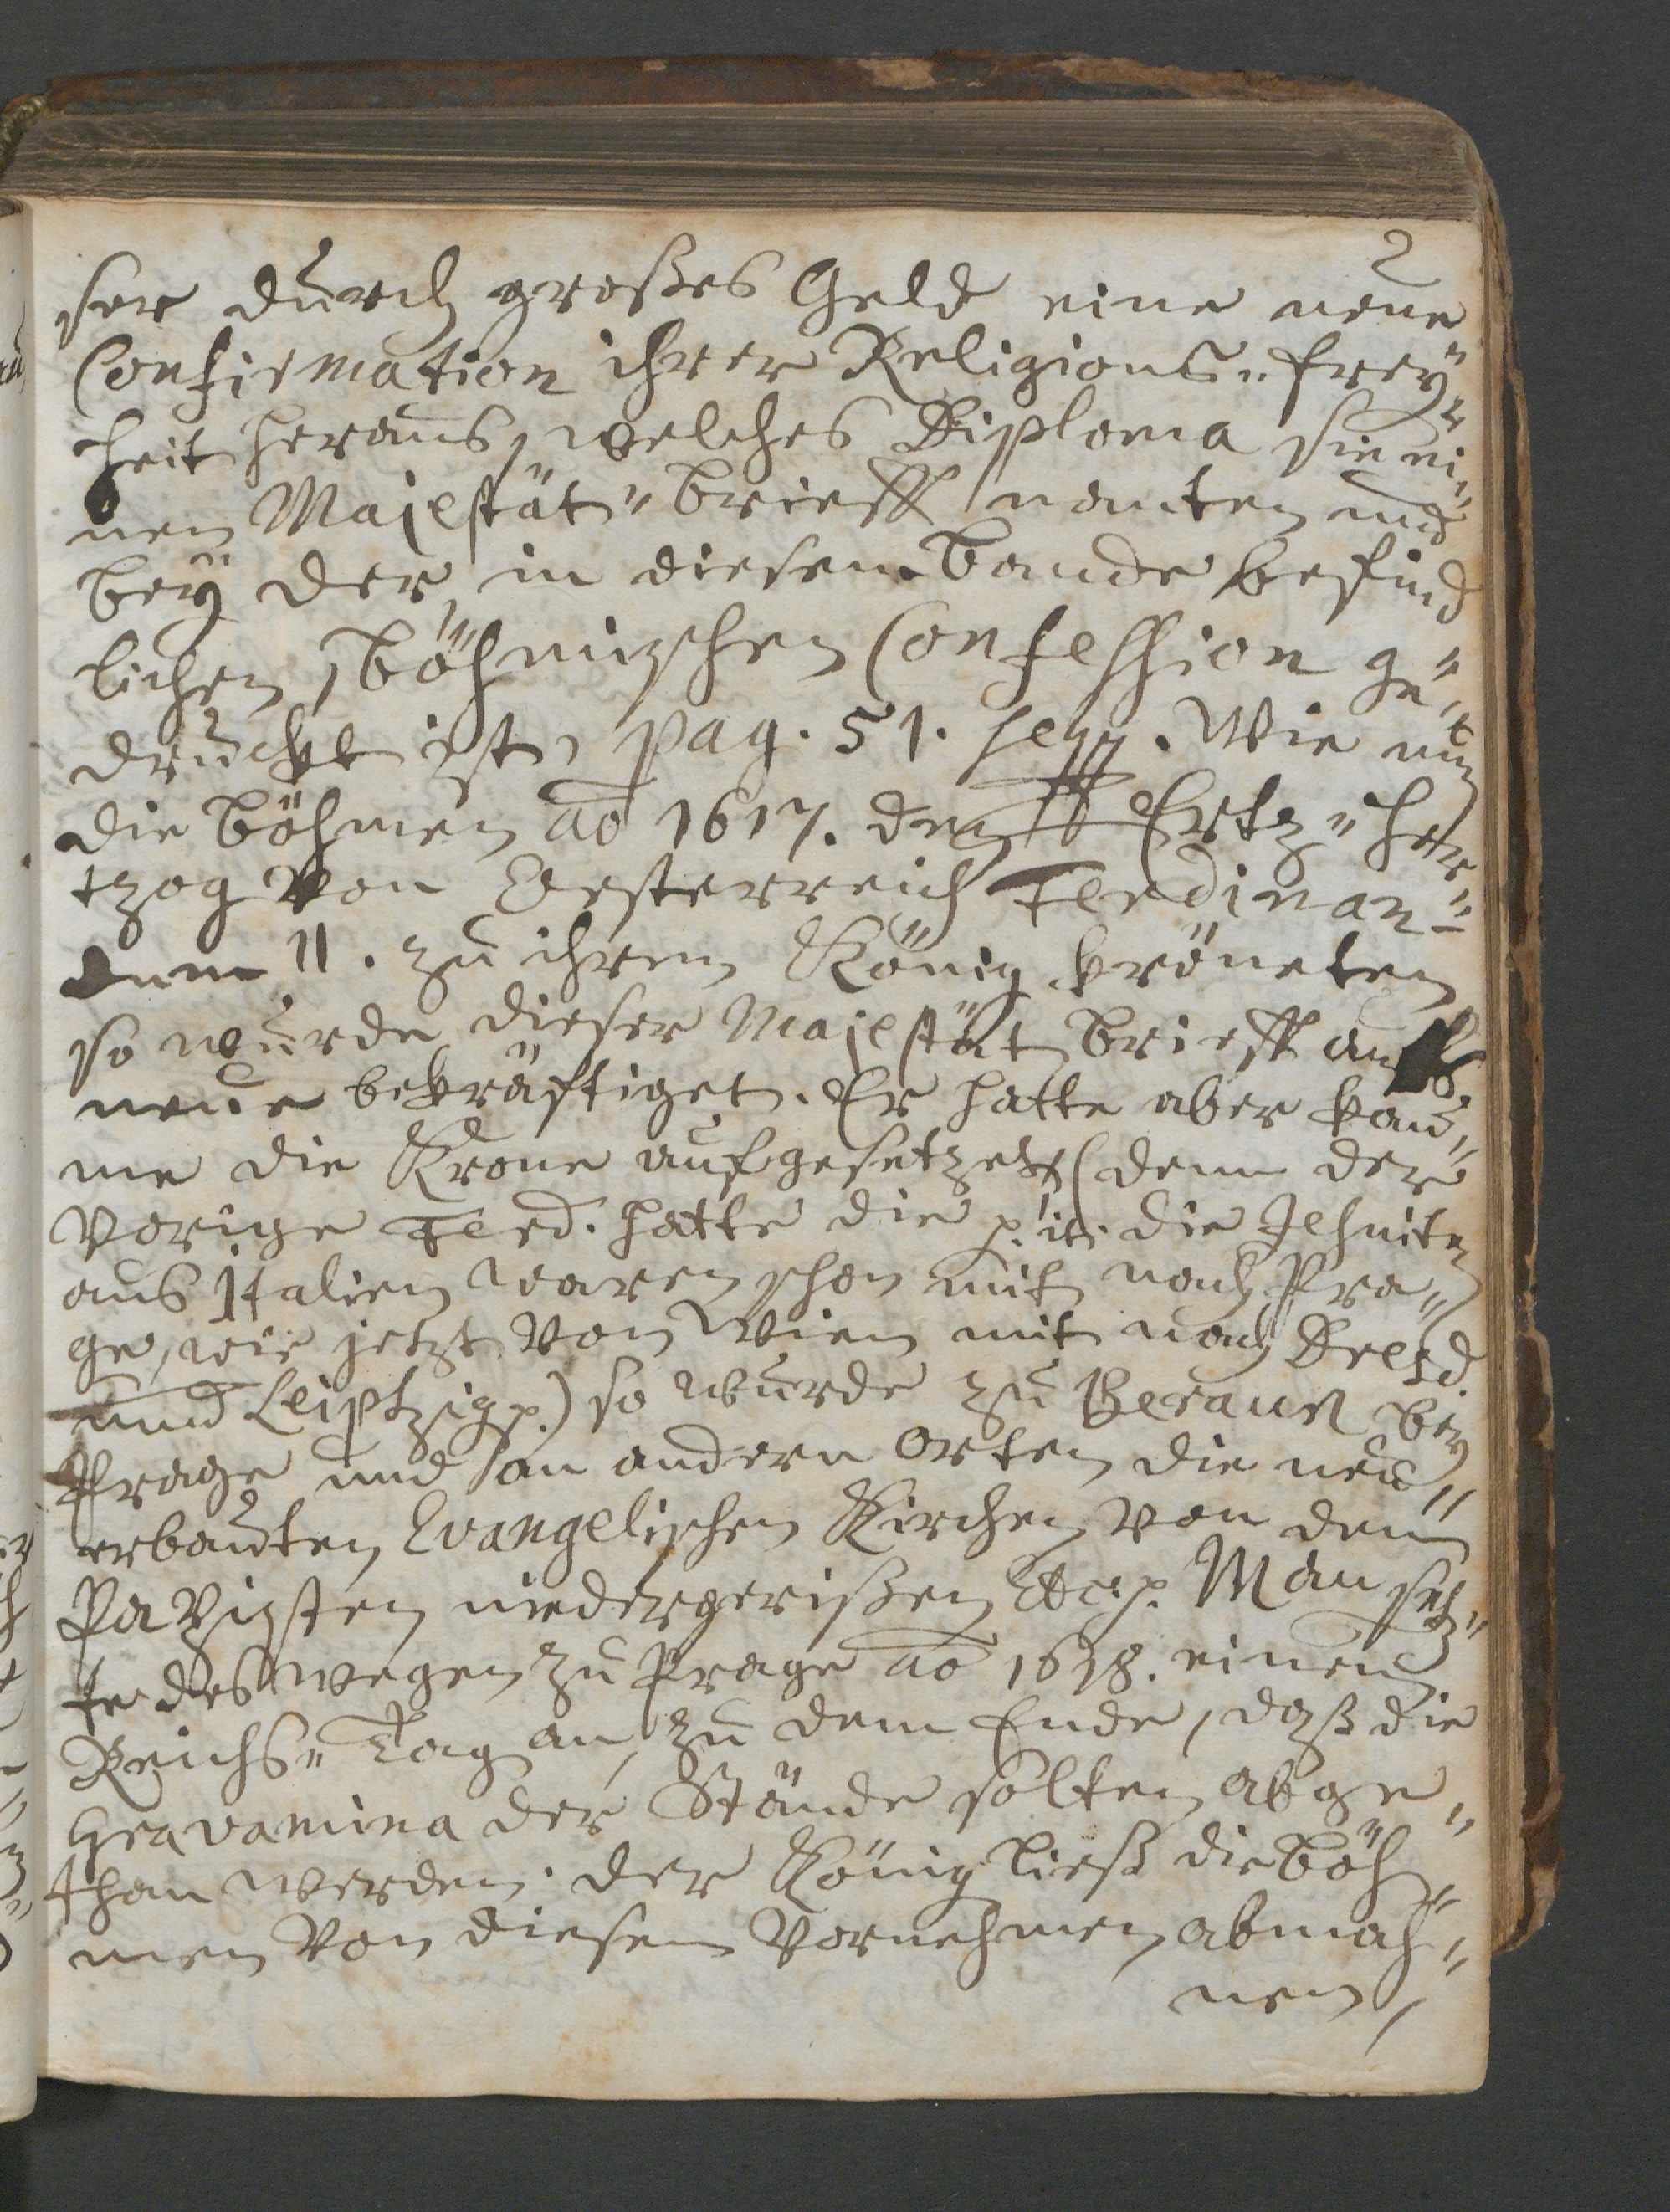 2
ser durch großes Geld eine neue
Confirmation ihrer Religions-frey-
heit heraus, welches Diploma sie ei-
nen Majestät-brieff nanten und
bey der in diesem bande befind
lichen böhmischen Confession ge-
druckt ist, pag. 51. seqq. Wie nun
die böhmen ao 1617. den Ertz-her-
tzog von Oesterreich Ferdinan-
dum II. zu ihrem König kröneten
so wurde dieser Majestät brieff auffs
neue bekräftiget. Er hatte aber kau-
me die Krone aufgesetzet (denn der
vorige Ferd. hatte die p. it. die Jesuiten
aus Italien waren schon mit nach Pra-
ge, wie jetzt von Wien mit nach Dresd.
und Leiptzig p.) so wurde zu Beraun bey
Prage und an andern Orten die neu-
erbauten Evangelischen Kirchen von den
Papisten niedergerißen etc. p. Man setz-
te deswegen zu Prage ao 1618. einen
Reichs-Tag an, zu dem Ende, daß die
Gravamina der Stände solten abge-
than werden. Der König ließ die böh-
men von diesem Vornehmen abmah-
nen,